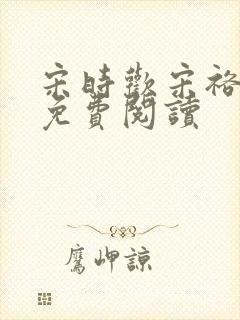 宋時歡宋裕
免費閱讀
鷹岬諒